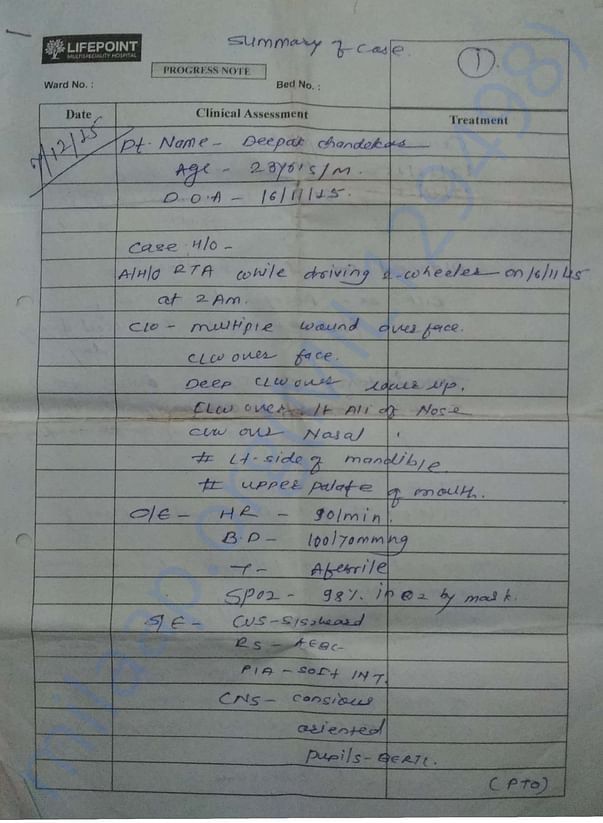 LIFEPOINT
MULTISPECIALITY HOSPITAL
Summary of case.
1
PROGRESS NOTE
Ward No. :
Bed No. :
Date
Clinical Assessment
Treatment
7/12/25
Pt. Name - Deepak Chandekar
Age - /M.
D.O.A - 16/11/25.
Case H/O -
A/H/O RTA while driving 2-wheeler on 16/11/25
at 2 AM.
C/O - multiple wound over face.
CLW over face.
Deep CLW over lower lip.
CLW over Lt Ali of Nose
CLW over Nasal
# Lt-side of mandible
# upper palate of mouth.
O/E - HR - 90/min.
B.P - 100/70mmHg
T - Afebrile
SPO2 - 98% in O2 by mask.
S/E - CVS - S1S2heard
RS - AEBE
P/A - SOFT INT.
CNS - consious
oriented
pupils - BERTL.
(PTO)
milaap.org